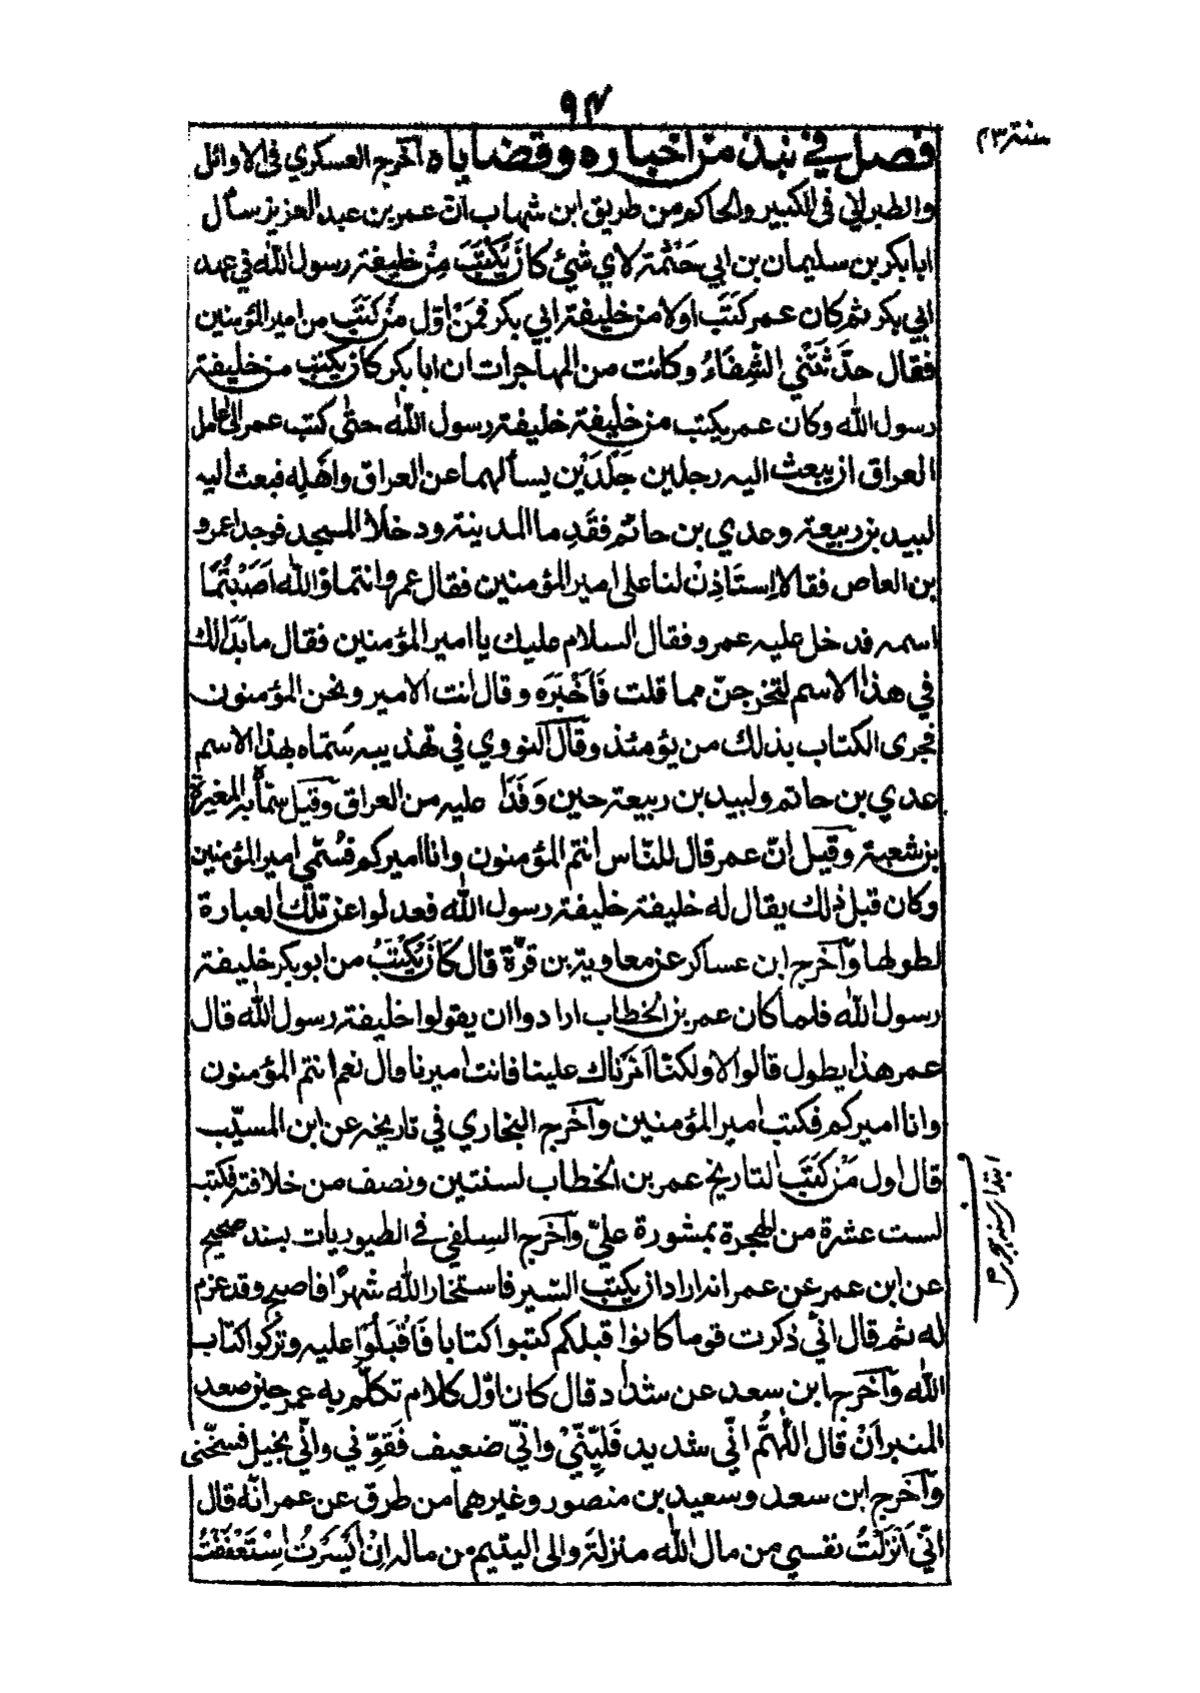 ٩٤
سنة ٢٣
فصل في نبذ من اخباره وقضاياه اخرج العسكري في الاوائل
والطبراني في الكبير والحاكم من طريق ابن شهاب انّ عمر بن عبد العزيز سأل
ابا بكر بن سليمان بن ابي حَثْمة لاي شئ كان يُكْتَبُ مِنْ خليفة رسول الله في عهد
ابي بكر ثم كان عمر كَتَبَ اولا من خليفة ابي بكر فمَنْ اوّل مَنْ كَتَبَ من امير المؤمنين
فقال حدّثَتْني الشِّفَاءُ وكانت من المهاجرات ان ابا بكر كان يكتب من خليفة
رسول الله وكان عمر يكتب من خليفة خليفة رسول الله حتى كتب عمر الى عامل
العراق ان يبعث اليه رجلين جَلْدَيْن يسألهما عن العراق واهْلِه فبعث اليه
لبيد بن ربيعة وعدي بن حاتم فقَدِما المدينة ودخلا المسجد فوجدا عمرو
بن العاص فقالا اِستَاذِنْ لنا على امير المؤمنين فقال عمرو انتما والله اَصَبْتُمَا
اسمه فدخل عليه عمرو فقال السلام عليك يا امير المؤمنين فقال ما بَدَا لك
في هذا الاسم لتخرجنّ مما قلت فَاَخْبَرَه وقال انت الامير ونحن المؤمنون
فجرى الكتاب بذلك من يؤمئذ وقال النووي في تهذيبه سَمّاه بهذا الاسم
عدي بن حاتم ولبيد بن ربيعة حين وَفَدَا عليه من العراق وقيل سمّاه به المغيرة
بن شعبة وقيل انّ عمر قال للنّاس انتم المؤمنون وانا اميركم فسُمّي امير المؤمنين
وكان قبل ذلك يقال له خليفة خليفة رسول الله فعدلوا عن تلك العبارة
لطولها وأخرج ابن عساكر عن معاوية بن قرّة قال كَانَ يُكْتَبُ من ابو بكر خليفة
رسول الله فلما كان عمر بن الخطاب ارادوا ان يقولوا خليفة رسول الله قال
عمر هذا يطول قالوا لا ولكنّا اَمّرْنَاك علينا فانت اميرنا قال نعم انتم المؤمنون
وانا اميركم فكتب امير المؤمنين وأخرج البخاري في تاريخه عن ابن المسيّب
قال اول مَنْ كَتَبَ التاريخ عمر بن الخطاب لسنتين ونصف من خلافته فكتب
لست عشرة من الهجرة بمشورة عليّ وأخرج السِلفي في الطيوريات بسند صحيح
عن ابن عمر عن عمر انه اراد ان يكتب السّير فاستخار الله شهرًا فاصبح وقد عزم
له ثم قال انّي ذكرت قوما كانوا قبلكم كتبوا كتابا فَاَقْبَلُوْا عليه وتركوا كتاب
الله وأخرج ابن سعد عن شداد قال كان اوّل كلام تكلّم به عمر حين صعد
المنبر اَنْ قال اللّٰهُمّ انّي شديد فَلَيِّنِّيْ وانّي ضعيف فَقَوِّني وانّي بخيل فسخّني
وأخرج ابن سعد وسعيد بن منصور وغيرهما من طرق عن عمر انّه قال
انّي اَنْزَلْتُ نفسي من مال الله منزلة والي اليتيم من ماله اِنْ اَيْسَرْتُ اِسْتَعْفَفْتُ
ابتداء سنة هجري